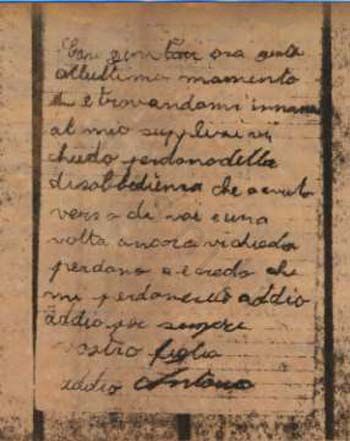 Cari genitori ora
all ultimo momento
e trovandomi innanzi
al mio supplizi vi
chiedo perdono della
disobbedienza che o avuto
verso di voi e una
volta ancora vi chiedo
perdono e credo che
mi perdonerete addio
addio per sempre
vostro figlio
addio Antonio